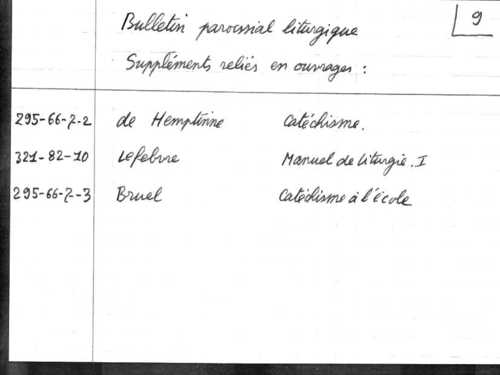 Bulletin paroissial liturgique
9
Suppléments reliés en ouvrages :
295-66-7-2 de Hemptinne Catéchisme.
321-82-10 Lefebvre Manuel de liturgie. I
295-66-7-3 Bruel Catéchisme à l'école